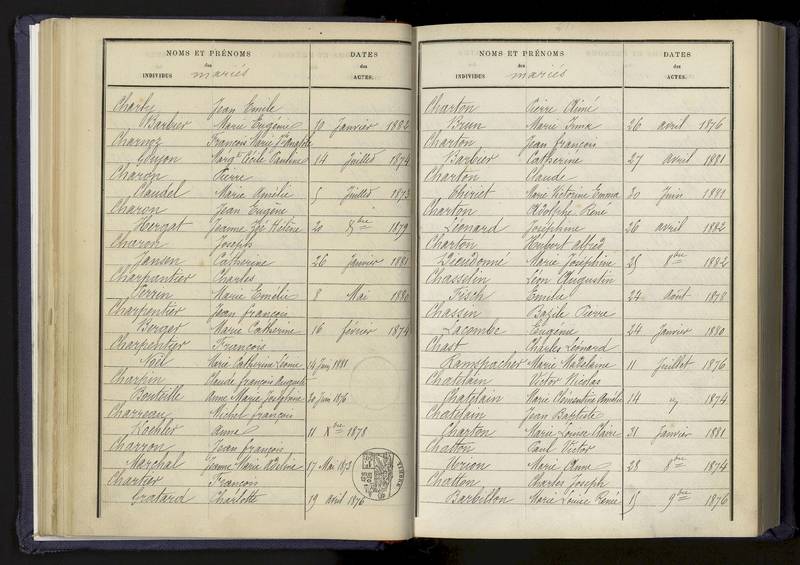 NOMS ET PRÉNOMS
DATES
des
des
INDIVIDUS mariés
ACTES.
Charly Jean Emile
Barbier Marie Eugénie 30 Janvier 1882
Charnoz François Marie
Guyon Marg. Cécile Pauline 14 Juillet 1874
Charon Pierre
Claudel Marie Amélie 5 Juillet 1873
Charon Jean Eugène
Hergat Jeanne Hélène 20 8bre 1879
Charon Joseph
Jansen Catherine 26 Janvier 1881
Charpantier Charles
Perrin Marie Emélie 8 Mai 1880
Charpentier Jean françois
Berger Marie Catherine 16 février 1874
Charpentier François
Noël Marie Catherine Léonie 14 Juin 1881
Charpin Claude françois Auguste
Bouteille Anne Marie Joséphine 20 Juin 1876
Charreau Michel françois
Koehler Anne 11 Xbre 1878
Charron Jean françois
Marchal Jeanne Marie 17 Mai 1873
Chartier François
Gratard Charlotte 19 avril 1876
NOMS ET PRÉNOMS
DATES
des
des
INDIVIDUS mariés
ACTES.
Charton Pierre Aimé
Brun Marie Irma 26 avril 1876
Charton Jean françois
Barbier Catherine 27 avril 1881
Charton Claude
Thiriet Marie Victorine Emma 30 Juin 1881
Charton Adolphe René
Léonard Joséphine 26 avril 1882
Charton Hubert alfred
Dieudonné Marie Joséphine 25 8bre 1882
Chasselin Léon Augustin
Fisch Emilie 24 Août 1878
Chassin Bazile Pierre
Lacombe Eugénie 24 Janvier 1880
Chast Charles Léonard
Ramspacher Marie Madelaine 11 Juillet 1876
Chatelain Victor Nicolas
Chatelain Marie Clémentine Amélie 14 " 1874
Chatelain Jean Baptiste
Charton Marie Louise Claire 31 Janvier 1881
Chatton Paul Victor
Marie Anne 28 8bre 1874
Chatton Charles Joseph
Barbillon Marie Louise Renée 15 9bre 1876